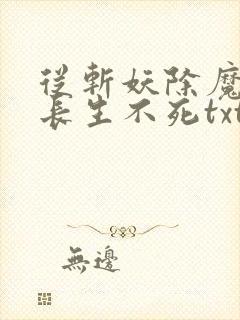 從斬妖除魔
長生不死txt
無邊